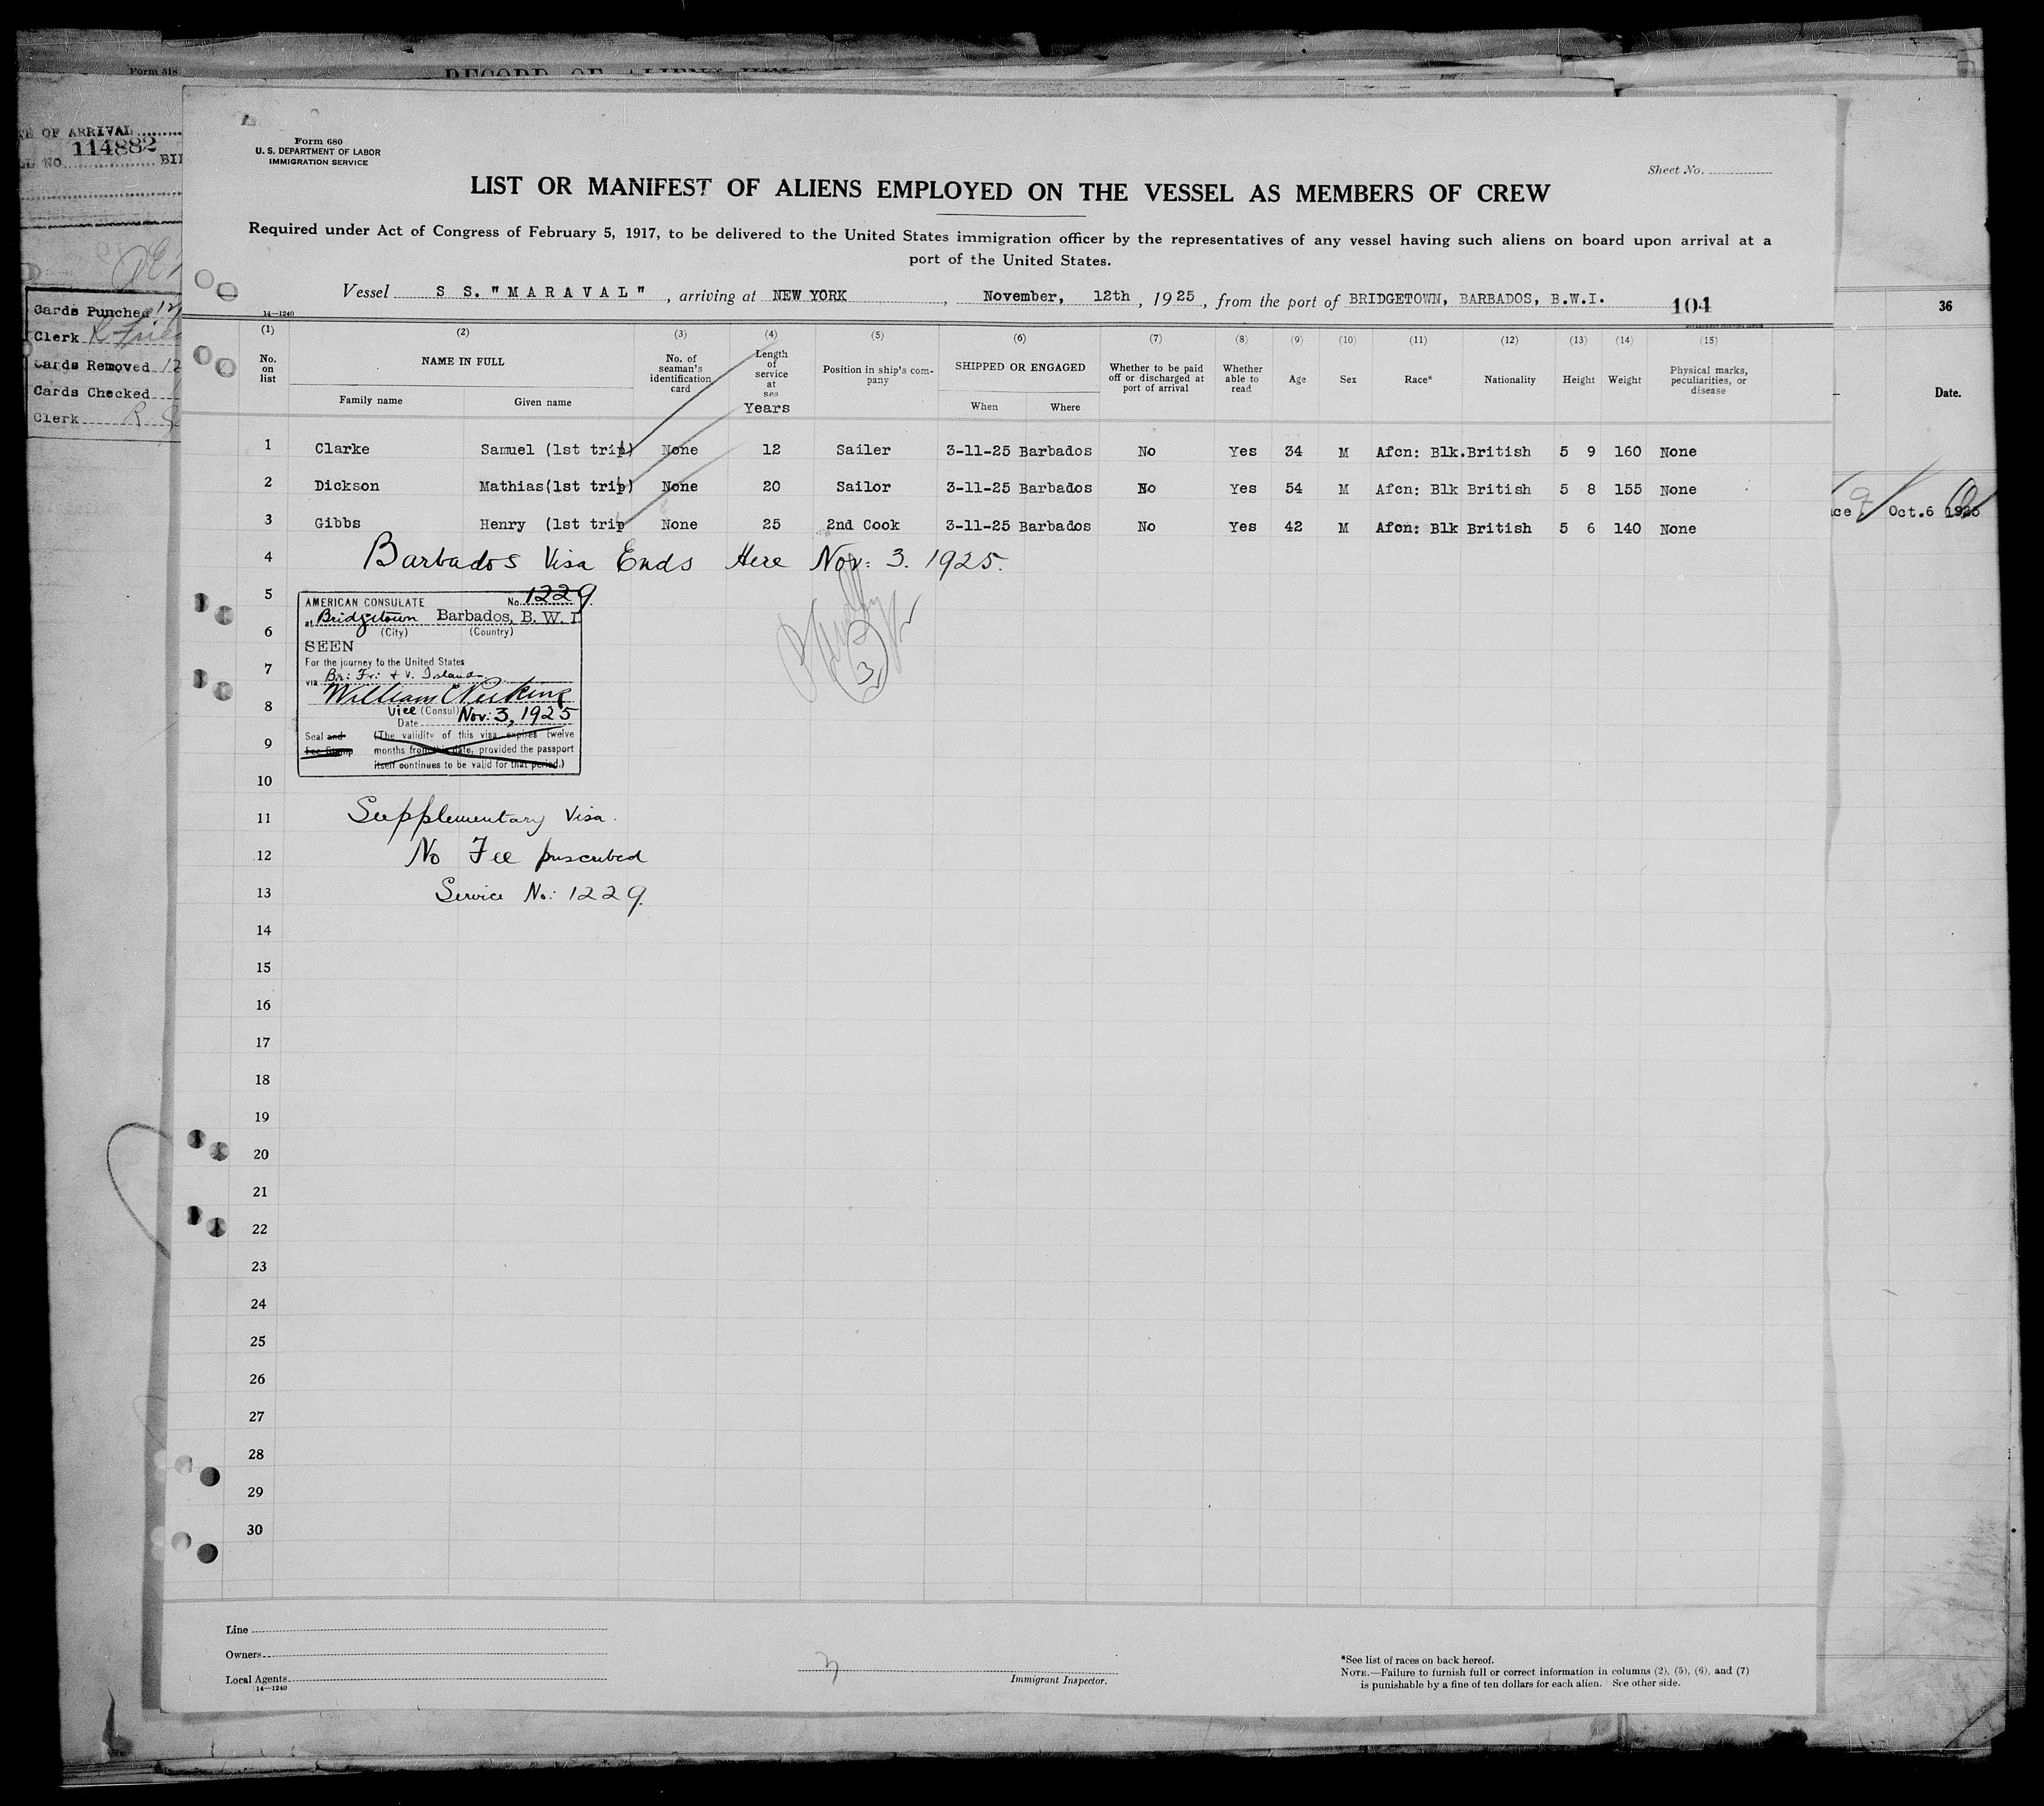 Form 518
RECORD OF ALIENS
OF ARRIVAL
NO. 114882
Cards Punched 12
Clerk
Cards Removed 12
Cards Checked
Clerk R
36
Date.
Oct.6 1925
Form 680
U. S. DEPARTMENT OF LABOR
IMMIGRATION SERVICE
Sheet No.
LIST OR MANIFEST OF ALIENS EMPLOYED ON THE VESSEL AS MEMBERS OF CREW
Required under Act of Congress of February 5, 1917, to be delivered to the United States immigration officer by the representatives of any vessel having such aliens on board upon arrival at a
port of the United States.
Vessel S S. "MARAVAL", arriving at NEW YORK, November, 12th, 1925, from the port of BRIDGETOWN, BARBADOS, B.W.I. 104
14—1240
(1) (2) (3) (4) (5) (6) (7) (8) (9) (10) (11) (12) (13) (14) (15)
No. on list NAME IN FULL No. of seaman's identification card Length of service at sea Position in ship's company SHIPPED OR ENGAGED Whether to be paid off or discharged at port of arrival Whether able to read Age Sex Race* Nationality Height Weight Physical marks, peculiarities, or disease
Family name Given name Years When Where
1 Clarke Samuel (1st trip) None 12 Sailer 3-11-25 Barbados No Yes 34 M Afcn: Blk. British 5 9 160 None
2 Dickson Mathias(1st trip) None 20 Sailor 3-11-25 Barbados No Yes 54 M Afcn: Blk British 5 8 155 None
3 Gibbs Henry (1st trip None 25 2nd Cook 3-11-25 Barbados No Yes 42 M Afcn: Blk British 5 6 140 None
4 Barbados Visa Ends Here Nov: 3. 1925.
5
AMERICAN CONSULATE No. 1229.
at Bridgetown Barbados, B. W. I.
6
(City) (Country)
SEEN
For the journey to the United States
7
via Br: Fr: + V. Island
William C Perkins
8
Vice (Consul)
Date Nov: 3, 1925
9
Seal and Fee Stamp (The validity of this visa expires twelve
months from this date, provided the passport
itself continues to be valid for that period.)
3
10
11 Supplementary Visa.
12 No Fee prescribed
13 Service No: 1229.
14
15
16
17
18
19
20
21
22
23
24
25
26
27
28
29
30
Line
Owners
Local Agents
14—1240
Immigrant Inspector.
*See list of races on back hereof.
NOTE.—Failure to furnish full or correct information in columns (2), (5), (6), and (7)
is punishable by a fine of ten dollars for each alien. See other side.